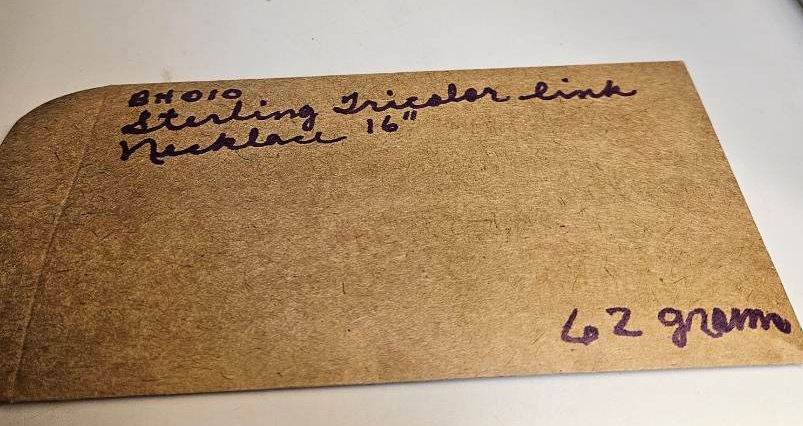 BH010
Sterling Tricolor link
Necklace 16"
62 grams